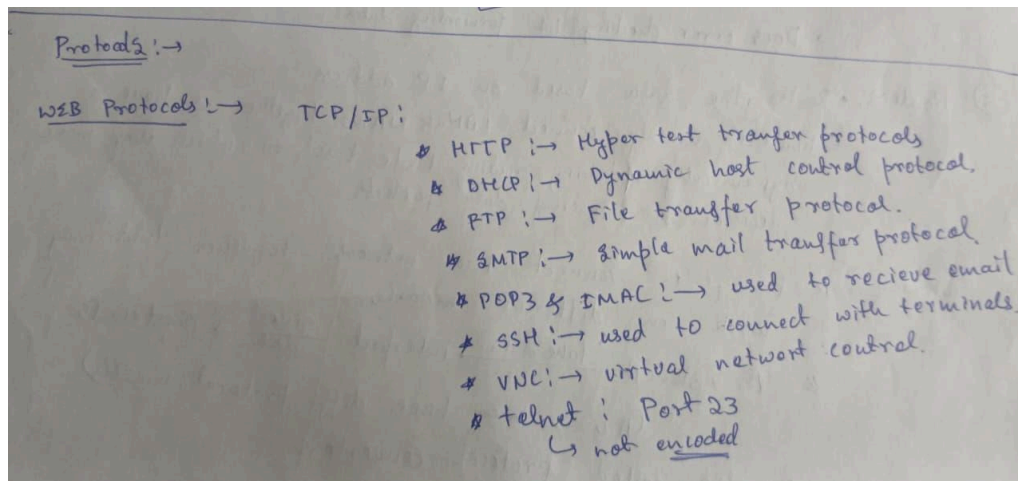 Protocols :→
WEB Protocols :→ TCP/IP :
* HTTP :→ Hyper text tranfer protocols
* DHCP :→ Dynamic host control protocol.
* FTP :→ File transfer protocol.
* SMTP :→ simple mail transfer protocol
* POP3 & IMAC :→ used to recieve email
* SSH :→ used to connect with terminals.
* VNC :→ virtual network control.
* telnet : Port 23
↳ not encoded